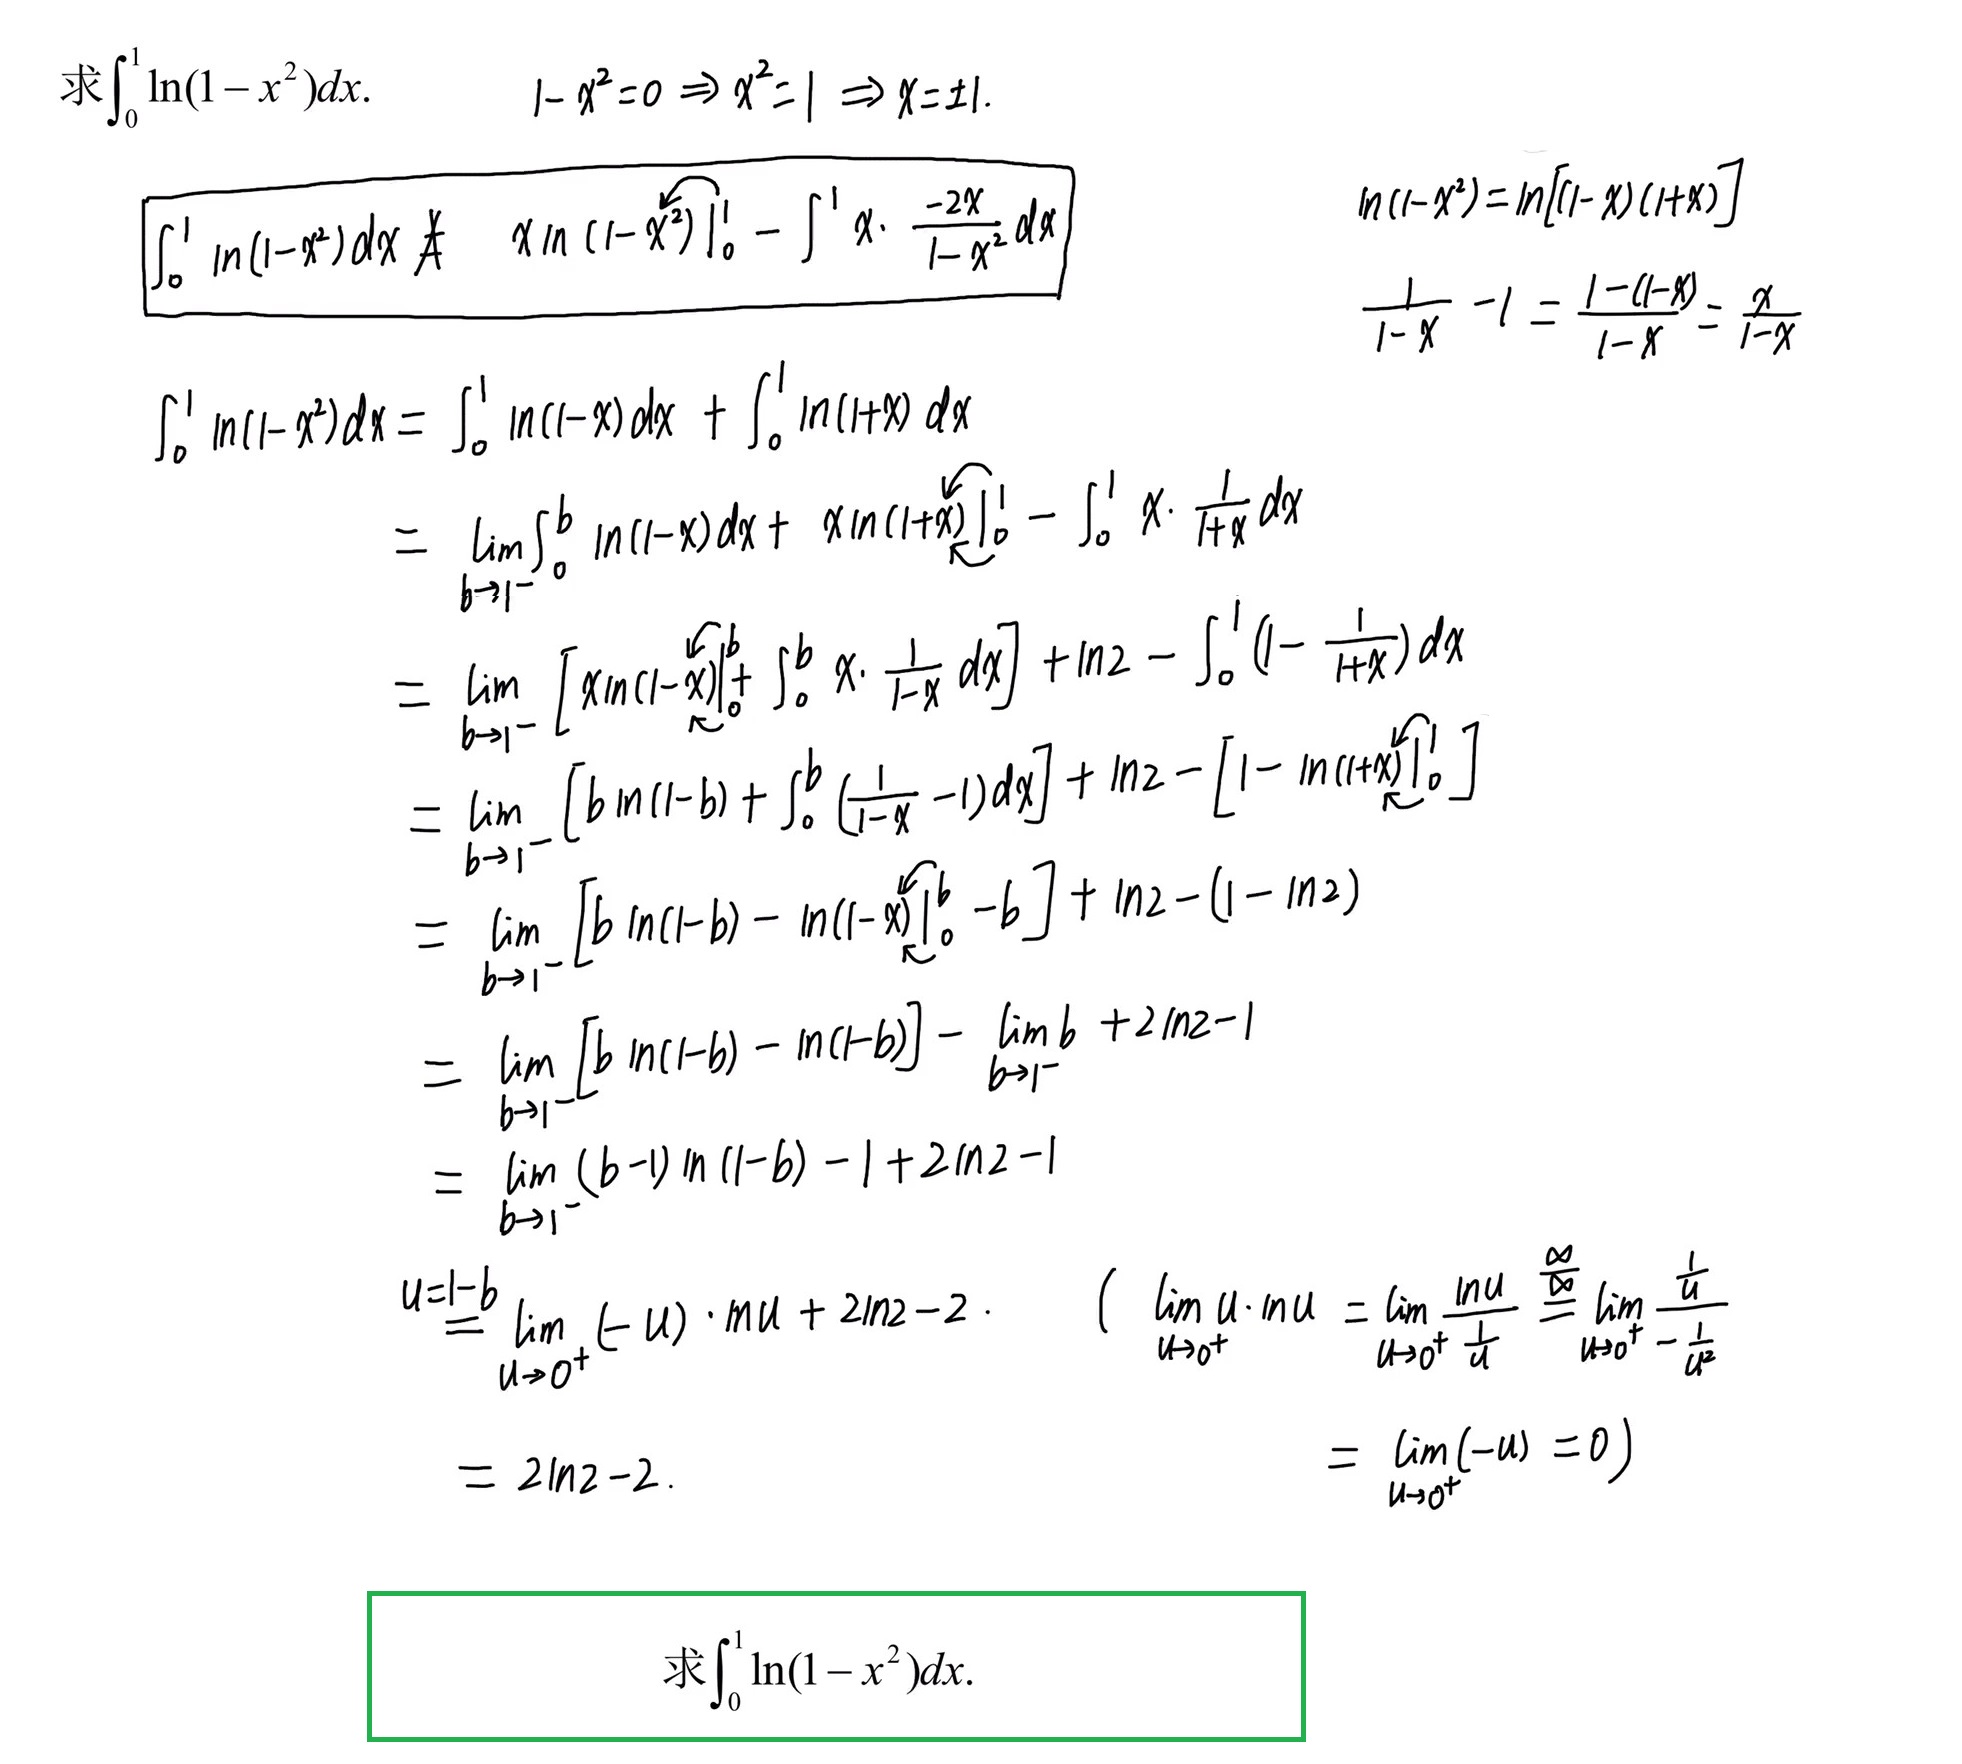 求∫₀¹ ln(1−x²)dx.
1−x²=0 ⇒ x²=1 ⇒ x=±1.
∫₀¹ ln(1−x²)dx ≠ x ln(1−x²)|₀¹ − ∫¹ x· \frac{-2x}{1−x²} dx
ln(1−x²)=ln[(1−x)(1+x)]
\frac{1}{1−x} −1 = \frac{1−(1−x)}{1−x} = \frac{x}{1−x}
∫₀¹ ln(1−x²)dx = ∫₀¹ ln(1−x)dx + ∫₀¹ ln(1+x) dx
= \lim_{b→1⁻} ∫₀ᵇ ln(1−x)dx + x ln(1+x)|₀¹ − ∫₀¹ x· \frac{1}{1+x} dx
= \lim_{b→1⁻} [x ln(1−x)|₀ᵇ + ∫₀ᵇ x· \frac{1}{1−x} dx] + ln2 − ∫₀¹ (1− \frac{1}{1+x}) dx
= \lim_{b→1⁻} [b ln(1−b) + ∫₀ᵇ (\frac{1}{1−x} −1)dx] + ln2 − [1− ln(1+x)|₀¹]
= \lim_{b→1⁻} [b ln(1−b) − ln(1−x)|₀ᵇ −b] + ln2 − (1−ln2)
= \lim_{b→1⁻} [b ln(1−b) − ln(1−b)] − \lim_{b→1⁻} b +2ln2−1
= \lim_{b→1⁻} (b−1) ln(1−b) −1+2ln2−1
\overset{u=1−b}{=} \lim_{u→0⁺} (−u)·lnu + 2ln2−2.
( \lim_{u→0⁺} u·lnu = \lim_{u→0⁺} \frac{lnu}{\frac{1}{u}} \overset{\frac{∞}{∞}}{=} \lim_{u→0⁺} \frac{\frac{1}{u}}{−\frac{1}{u²}}
= \lim_{u→0⁺} (−u) =0)
= 2ln2−2.
求∫₀¹ ln(1−x²)dx.